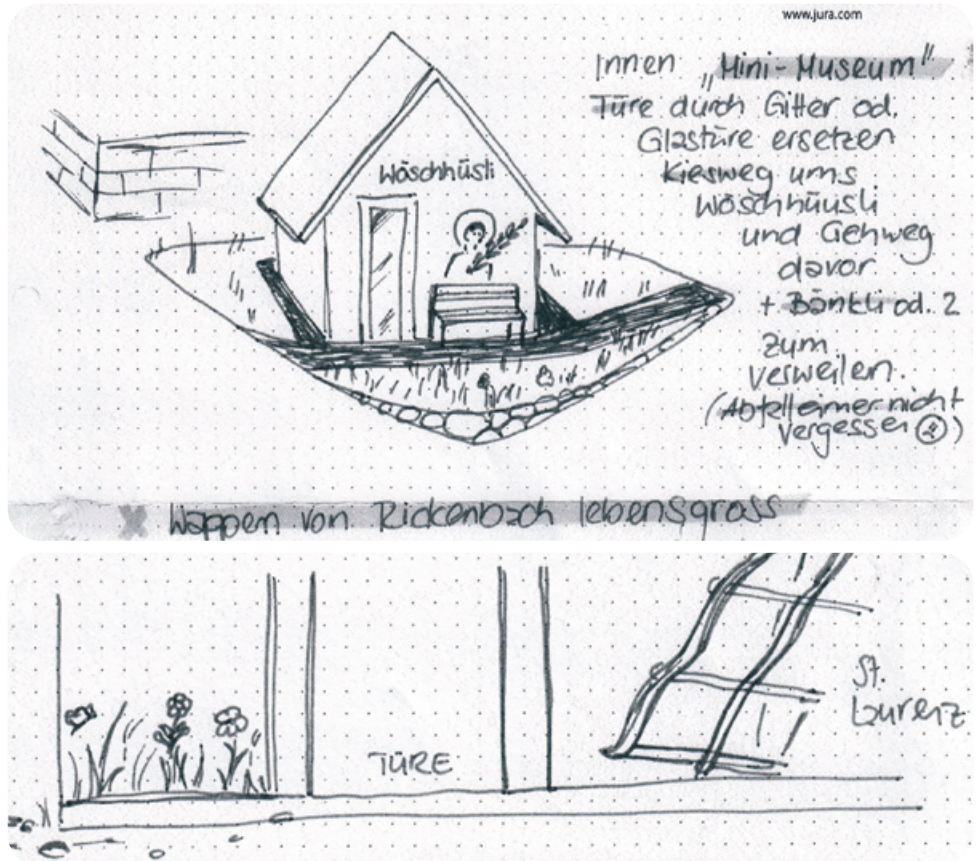 www.jura.com
Innen „Mini-Museum"
Türe durch Gitter od.
Glastüre ersetzen
Kiesweg ums
Wöschhüüsli
und Gehweg
davor
+ Bänkli od. 2
zum
verweilen.
(Abfelleimer nicht
vergessen)
Wöschhüsli
x Wappen von Rickenbach lebensgross
TÜRE
St.
Lurenz